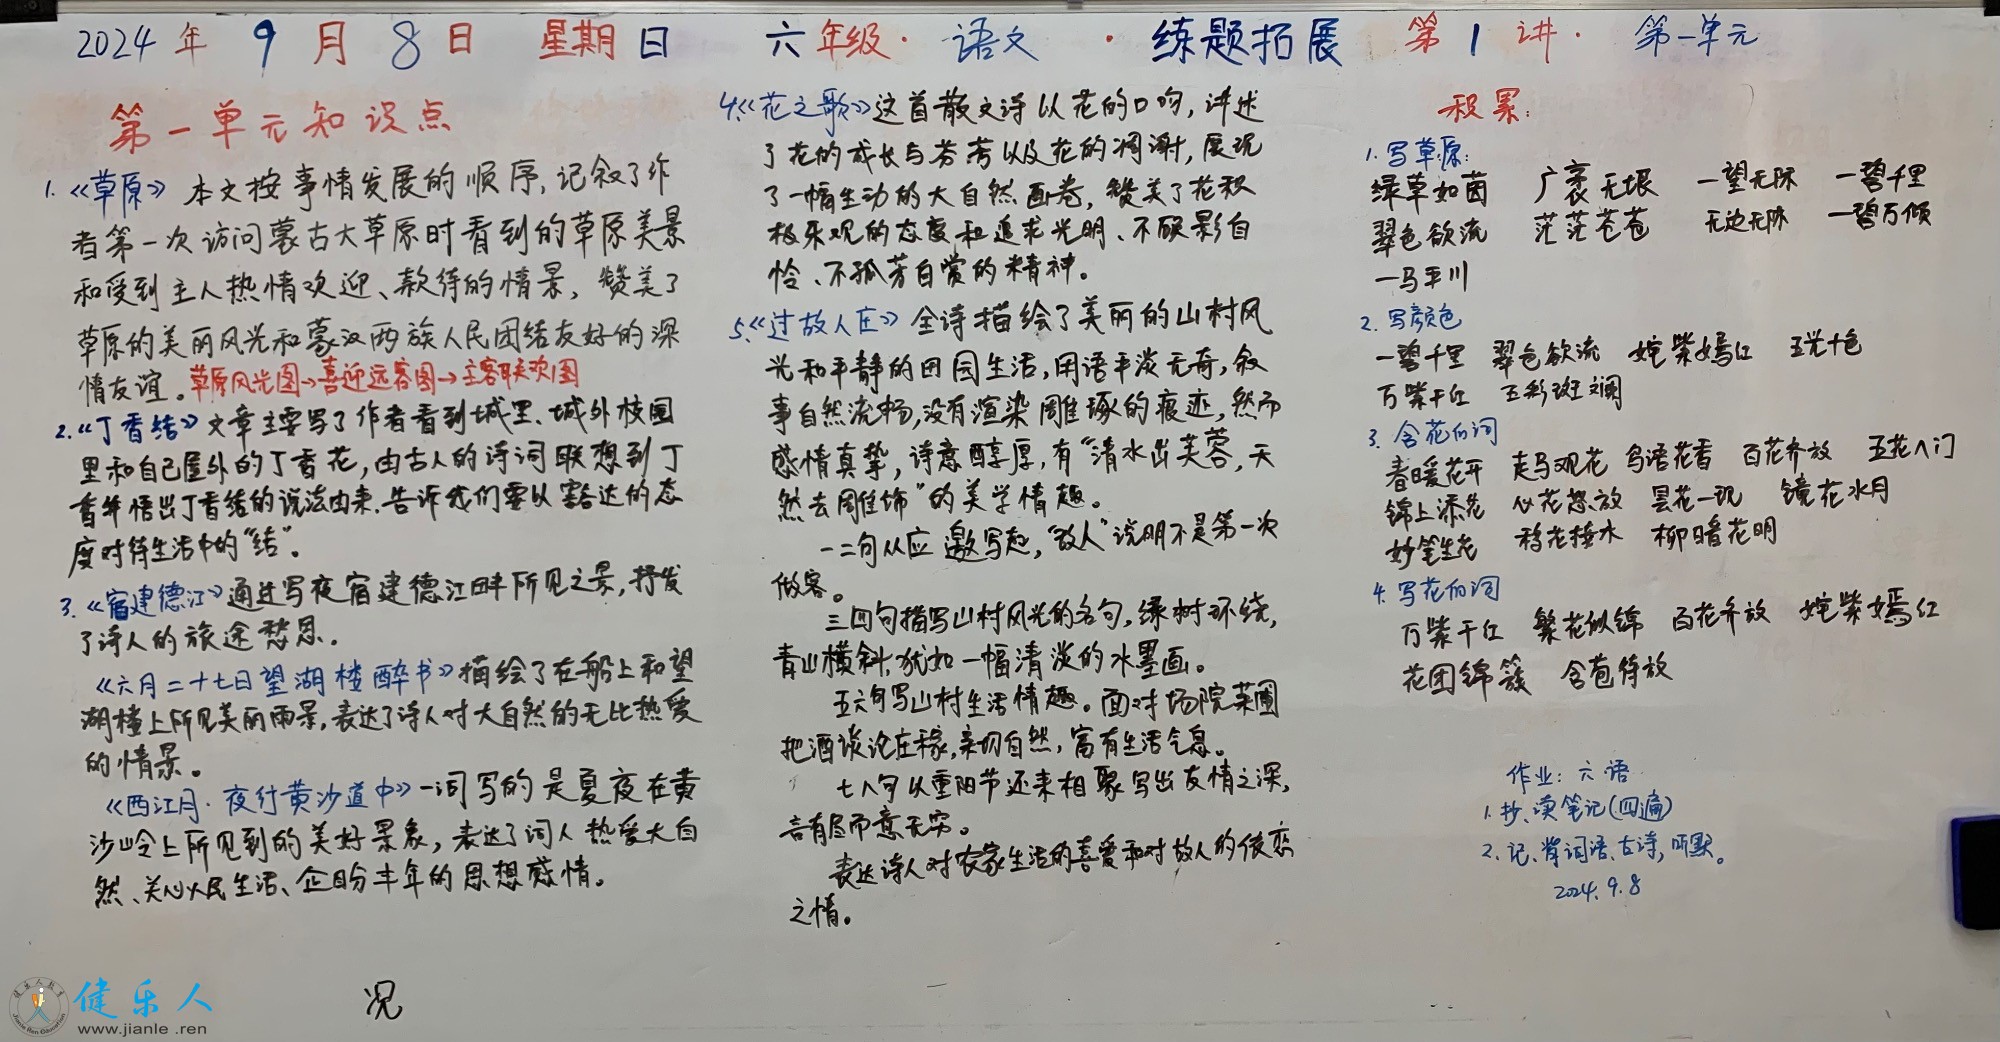 2024年 9月8日 星期日 六年级·语文·练题拓展 第1讲·第一单元
第一单元知识点
1.《草原》本文按事情发展的顺序,记叙了作
者第一次访问蒙古大草原时看到的草原美景
和受到主人热情欢迎、款待的情景,赞美了
草原的美丽风光和蒙汉两族人民团结友好的深
情友谊。草原风光图→喜迎远客图→主客联欢图
2.《丁香结》文章主要写了作者看到城里、城外校园
里和自己屋外的丁香花,由古人的诗词联想到丁
香并悟出丁香结的说法由来.告诉我们要以豁达的态
度对待生活中的“结”。
3.《宿建德江》通过写夜宿建德江畔所见之景,抒发
了诗人的旅途愁思。
《六月二十七日望湖楼醉书》描绘了在船上和望
湖楼上所见美丽雨景,表达了诗人对大自然的无比热爱
的情景。
《西江月·夜行黄沙道中》一词写的是夏夜在黄
沙岭上所见到的美好景象,表达了词人热爱大自
然、关心人民生活、企盼丰年的思想感情。
况
4.《花之歌》这首散文诗以花的口吻,讲述
了花的成长与芬芳以及花的凋谢,展现
了一幅生动的大自然画卷,赞美了花积
极乐观的态度和追求光明、不顾影自
怜、不孤芳自赏的精神。
5.《过故人庄》全诗描绘了美丽的山村风
光和平静的田园生活,用语平淡无奇,叙
事自然流畅,没有渲染雕琢的痕迹,然而
感情真挚,诗意醇厚,有“清水出芙蓉,天
然去雕饰”的美学情趣。
一二句从应邀写起,“故人”说明不是第一次
做客。
三四句描写山村风光的名句,绿树环绕,
青山横斜,犹如一幅清淡的水墨画。
五六句写山村生活情趣。面对场院菜圃
把酒谈论庄稼,亲切自然,富有生活气息。
七八句以重阳节还来相聚写出友情之深,
言有尽而意无穷。
表达诗人对农家生活的喜爱和对故人的依恋
之情。
积累:
1.写草原:
绿草如茵 广袤无垠 一望无际 一碧千里
翠色欲流 茫茫苍苍 无边无际 一碧万顷
一马平川
2.写颜色
一碧千里 翠色欲流 姹紫嫣红 五光十色
万紫千红 五彩斑斓
3.含花的词
春暖花开 走马观花 鸟语花香 百花齐放 五花八门
锦上添花 心花怒放 昙花一现 镜花水月
妙笔生花 移花接木 柳暗花明
4.写花的词
万紫千红 繁花似锦 百花齐放 姹紫嫣红
花团锦簇 含苞待放
作业:六语
1.抄、读笔记(四遍)
2.记、背词语、古诗,听默。
2024.9.8
健乐人
www.jianle.ren